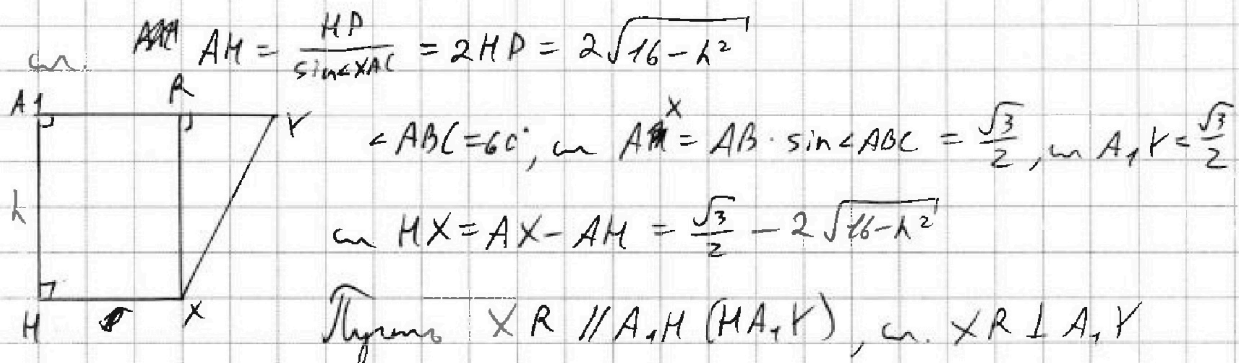 сл. AH = \frac{HP}{\sin∠XAC} = 2HP = 2\sqrt{16-h^2}
A1 R Y
∠ABC=60°, сл AX = AB · sin∠ABC = \frac{\sqrt{3}}{2}, сл A₁Y = \frac{\sqrt{3}}{2}
h
сл HX = AX - AH = \frac{\sqrt{3}}{2} - 2\sqrt{16-h^2}
H X
Пусть XR // A₁H (HA₁Y), сл. XR ⊥ A₁Y